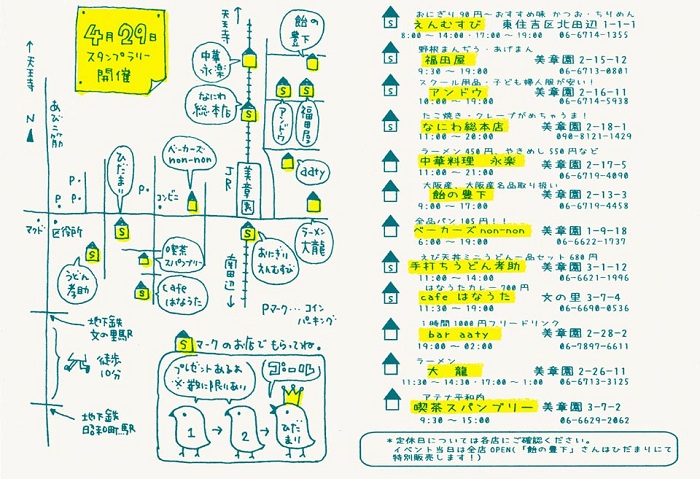 4月29日
スタンプラリー
開催
↑天王寺
↑天王寺
飴の
豊下
中華
永楽
なにわ
総本店
アンドウ
福田屋
あびこ筋
N
ひだまり
ベーカーズ
non-non
JR
美章園
aaty
P.
P.
P.
P.
コンビニ
マクド
区役所
ラーメン
大龍
うどん
孝助
喫茶
スパンブリー
Cafe
はなうた
おにぎり
えんむすび
南田辺
↓
Pマーク…コイン
パーキング
地下鉄
文の里駅
徒歩
10分
地下鉄
昭和町駅
Sマークのお店でもらってね。
プレゼントあるよ
※数に限りあり
ゴール
1
→
2
→
ひだ
まり
おにぎり90円〜おすすめ味 かつお・ちりめん
えんむすび 東住吉区北田辺 1-1-1
8:00 〜 14:00・17:00 〜 19:00 06-6714-1355
野根まんぢう・あげまん
福田屋 美章園 2-15-12
9:30 〜 19:00 06-6713-0801
スクール用品・子ども婦人服が安い!
アンドウ 美章園 2-16-11
10:00 〜 19:00 06-6714-5938
たこ焼き・クレープがめちゃうま!
なにわ総本店 美章園 2-18-1
11:00 〜 20:00 090-8121-1429
ラーメン 450円、やきめし 550円など
中華料理 永楽 美章園 2-17-5
11:00 〜 21:00 06-6719-4090
大阪産、大阪産名品取り扱い
飴の豊下 美章園 2-13-3
9:00 〜 17:00 06-6719-4458
全品パン 105円!!
ベーカーズ non-non 美章園 1-9-18
6:00 〜 19:00 06-6622-1737
えび天丼ミニうどん一品セット 680円
手打ちうどん孝助 美章園 3-1-12
11:00 〜 14:00 06-6621-1996
はなうたカレー 700円
cafe はなうた 文の里 3-7-4
11:30 〜 18:00 06-6690-0536
1時間1000円フリードリンク
bar aaty 美章園 2-28-2
19:00 〜 02:00 06-7897-6611
ラーメン
大 龍 美章園 2-26-11
11:30 〜 14:30・17:00 〜 1:00 06-6713-3125
アテナ平和内
喫茶スパンブリー 美章園 3-7-2
9:30 〜 15:00 06-6629-2062
＊定休日については各店にご確認ください。
イベント当日は全店 OPEN(「飴の豊下」さんはひだまりにて
特別販売します!)